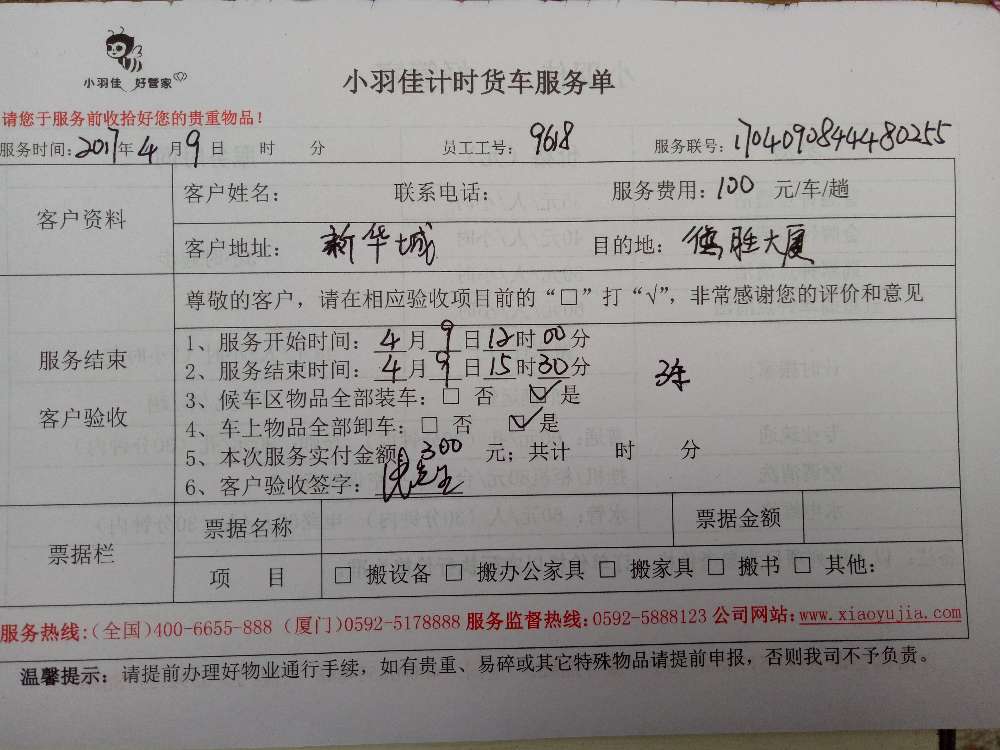 小羽佳 好管家
小羽佳计时货车服务单
请您于服务前收拾好您的贵重物品！
服务时间：2017年4月9日 时 分 员工工号：9618 服务联号：1704090844480255
客户资料
客户姓名： 联系电话： 服务费用：100 元/车/趟
客户地址：新华城 目的地：德胜大厦
服务结束
客户验收
尊敬的客户，请在相应验收项目前的“□”打“√”，非常感谢您的评价和意见
1、服务开始时间：4月9日12时00分
2、服务结束时间：4月9日15时30分
3车
3、候车区物品全部装车：□ 否 ☑是
4、车上物品全部卸车：□ 否 ☑是
5、本次服务实付金额：300 元；共计 时 分
6、客户验收签字：
票据栏
票据名称 票据金额
项 目 □ 搬设备 □ 搬办公家具 □ 搬家具 □ 搬书 □ 其他：
服务热线：（全国）400-6655-888 （厦门）0592-5178888 服务监督热线：0592-5888123 公司网站：www.xiaoyujia.com
温馨提示：请提前办理好物业通行手续，如有贵重、易碎或其它特殊物品请提前申报，否则我司不予负责。